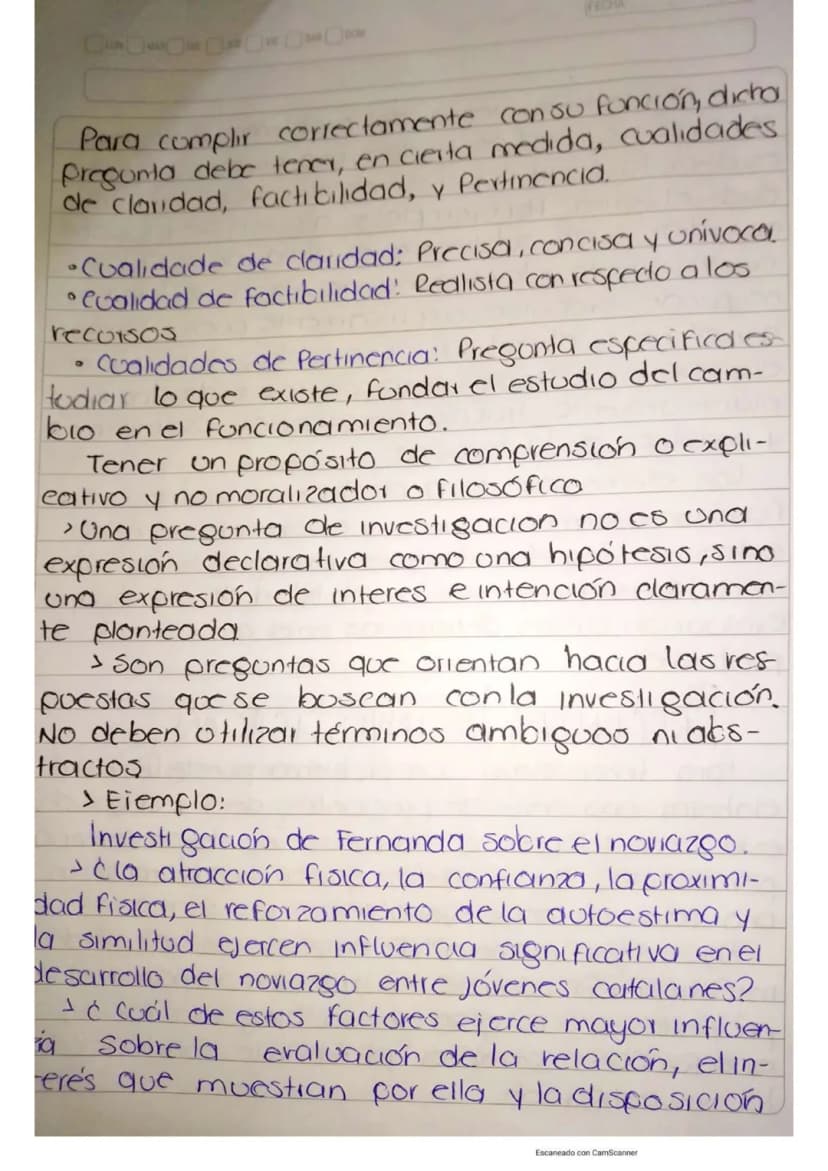 FECHA
LUN MAR MIE JUE VIE SAB DOM
Para cumplir correctamente con su función, dicha
pregunta debe tener, en cierta medida, cualidades
de claridad, factibilidad, y Pertinencia.
•Cualidade de claridad: Precisa, concisa y unívoca.
•cualidad de factibilidad: Realista con respecto a los
recursos
• Cualidades de Pertinencia: Pregunta especifica es-
tudiar lo que existe, fundar el estudio del cam-
bio en el funcionamiento.
Tener un propósito de comprensión o expli-
cativo y no moralizador o filosófico
>Una pregunta de investigacion no es una
expresión declarativa como una hipótesis, sino
una expresión de interes e intención claramen-
te planteada
> Son preguntas que orientan hacia las res
puestas que se buscan con la investigación.
No deben utilizar términos ambiguos ni abs-
tractos
> Ejemplo:
Investigación de Fernanda sobre el noviazgo.
> ¿la atracción física, la confianza, la proximi-
dad física, el reforzamiento de la autoestima y
la similitud ejercen influencia significativa en el
desarrollo del noviazgo entre jóvenes catalanes?
> ¿Cuál de estos factores ejerce mayor influen-
ia sobre la evaluación de la relación, el in-
terés que muestran por ella y la disposición
Escaneado con CamScanner